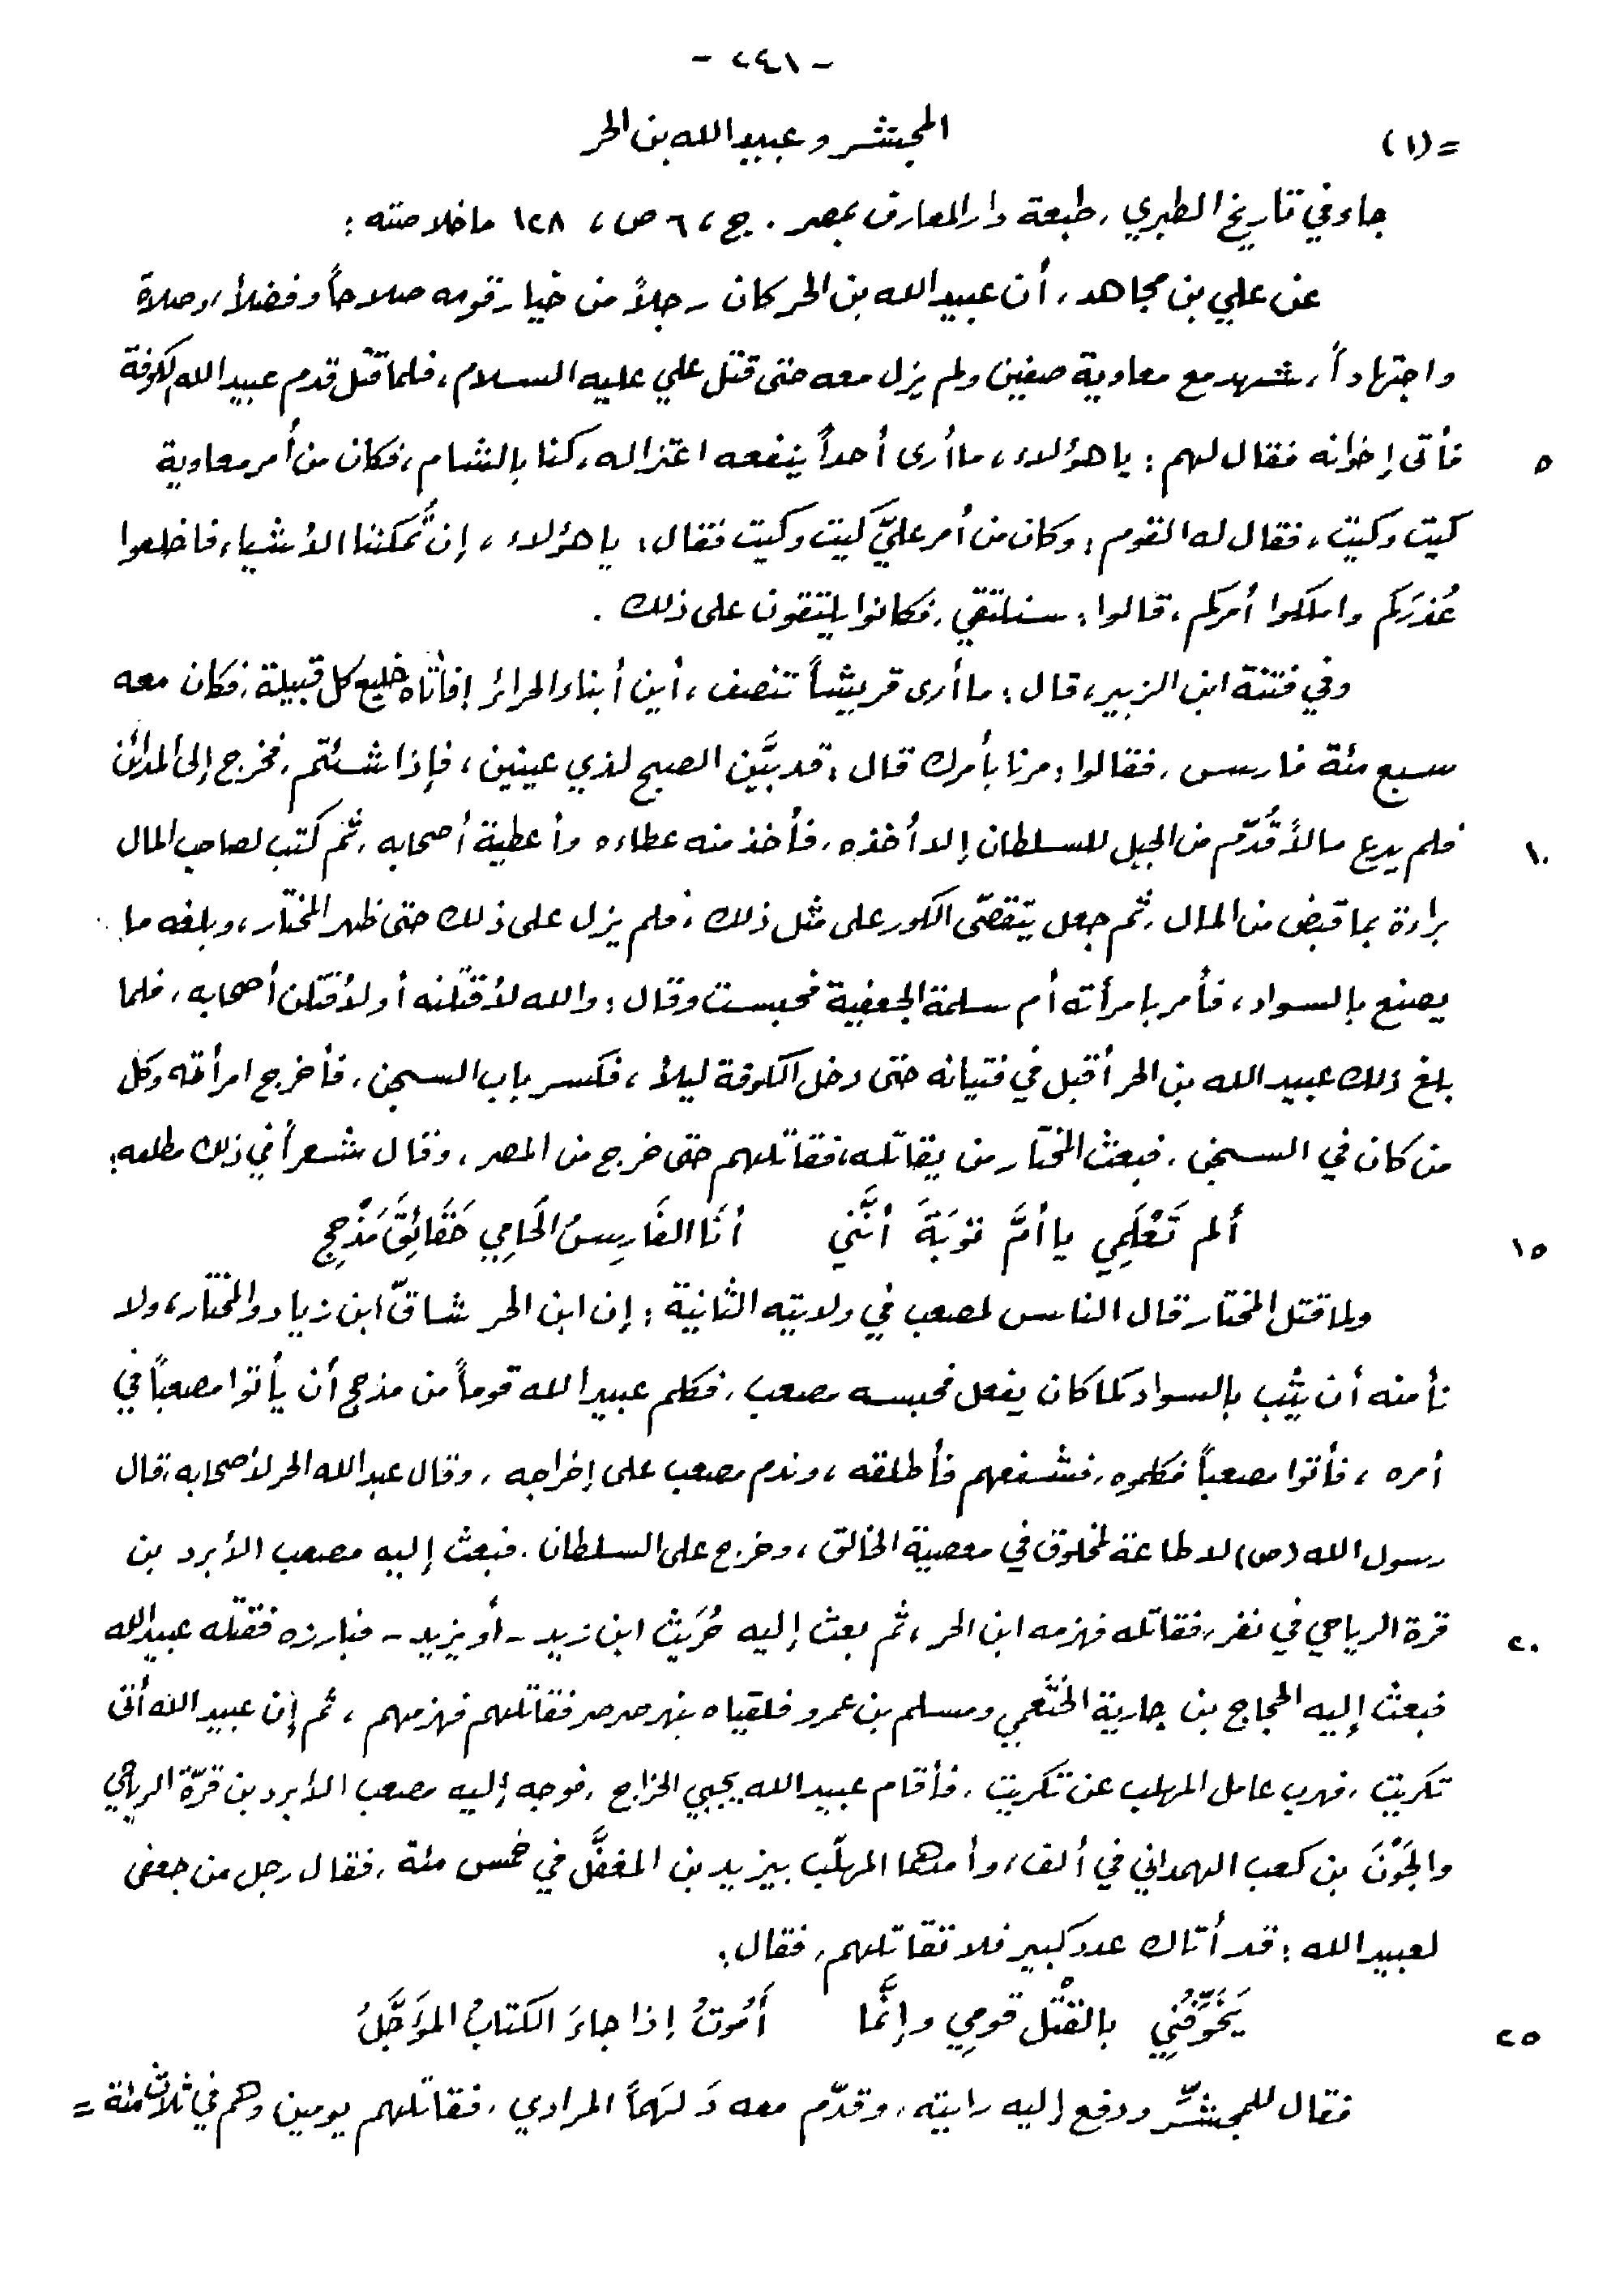 - ٢٤١ -
=(١) المجتشر وعبيد الله بن الحر
جاء في تاريخ الطبري، طبعة دار المعارف بمصر. ج، ٦ ص، ١٢٨ ما خلاصته:
عن علي بن مجاهد، أن عبيد الله بن الحر كان رجلاً من خيار قومه صلاحاً وفضلاً، وصلاة
واجتهاداً، شهد مع معاوية صفين ولم يزل معه حتى قتل علي عليه السلام، فلما قُتل قدم عبيد الله الكوفة
٥ فأتى إخوانه فقال لهم: يا هؤلاء، ما أرى أحداً ينفعه اعتزاله، كنا بالشام، فكان من أمر معاوية
كيت وكيت، فقال له القوم: وكان من أمر عليّ كيت وكيت فقال: يا هؤلاء، إن تُمكننا الأشياء فاخلعوا
عُذرَكم واملكوا أمركم، قالوا: سنلتقي، فكانوا يلتقون على ذلك.
وفي فتنة ابن الزبير، قال: ما أرى قريشاً تنصف، أين أبناء الحرائر! فأتاه خليع كل قبيلة، فكان معه
سبع مئة فارس، فقالوا: مرنا بأمرك قال: قد بيَّن الصبح لذي عينين، فإذا شئتم، فخرج إلى المدائن
١٠ فلم يدع مالاً قُدّم من الجبل للسلطان إلا أخذه، فأخذ منه عطاءه وأعطية أصحابه، ثم كتب لصاحب المال
براءة بما قبض من المال، ثم جعل يتقصّى الكور على مثل ذلك، فلم يزل على ذلك حتى ظهر المختار، وبلغه ما
يصنع بالسواد، فأمر بامرأته أم سلمة الجعفية فحبست وقال: والله لأقتلنه أو لأقتلن أصحابه، فلما
بلغ ذلك عبيد الله بن الحر أقبل في فتيانه حتى دخل الكوفة ليلاً، فكسر باب السجن، فأخرج امرأته وكل
من كان في السجن، فبعث المختار من يقاتله، فقاتلهم حتى خرج من المصر، وقال شعراً في ذلك مطلعه:
١٥ ألم تَعْلَمِي يا أمَّ توبَةَ أنَّني أنَا الفَارِسُ الحَامِي حَقَائِقَ مَذْحِجِ
ولما قتل المختار قال الناس لمصعب في ولايته الثانية: إن ابن الحر شاقّ ابن زياد والمختار، ولا
نأمنه أن يثب بالسواد كما كان يفعل فحبسه مصعب، فكلم عبيد الله قوماً من مذحج أن يأتوا مصعباً في
أمره، فأتوا مصعباً فكلموه، فشفعهم فأطلقه، وندم مصعب على إخراجه، وقال عبد الله الحر لأصحابه، قال
رسول الله (ص) لا طاعة لمخلوق في معصية الخالق، وخرج على السلطان. فبعث إليه مصعب الأبرد بن
٢٠ قرة الرياحي في نفر، فقاتله فهزمه ابن الحر، ثم بعث إليه حُرَيث ابن زيد - أو يزيد - فبارزه فقتله عبيد الله
فبعث إليه الحجاج بن جارية الخثعمي ومسلم بن عمرو فلقياه بنهر صرصر فقاتلهم فهزمهم، ثم إن عبيد الله أتى
تكريت، فهرب عامل المهلب عن تكريت، فأقام عبيد الله يجبي الخراج، فوجه إليه مصعب الأبرد بن قرّة الرياحي
والجَوْنَ بن كعب الهمداني في ألف، وأمدهما المهلّب بيزيد بن المغفَّل في خمس مئة، فقال رجل من جعفى
لعبيد الله: قد أتاك عدد كبير فلا تقاتلهم، فقال:
٢٥ يَخوِّفُنِي بالقتْل قومِي وإنَّما أَمُوتُ إذا جاءَ الكتابُ المؤَجَّلُ
فقال للمجشّر ودفع إليه رايته، وقدّم معه دَلهَماً المرادي، فقاتلهم يومين وهم في ثلاث مئة =